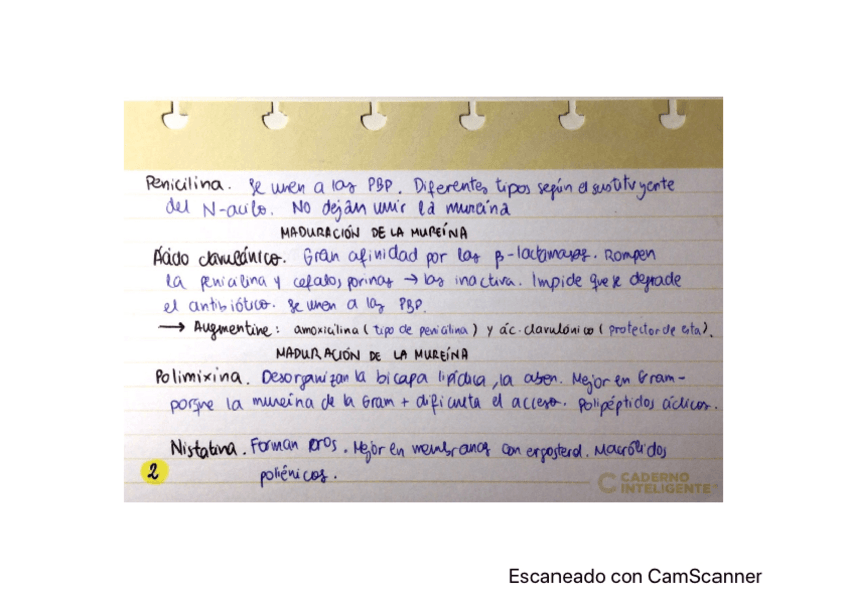 Penicilina. Se unen a las PBP. Diferentes tipos según el sustituyente
del N-acilo. No dejan unir la mureína
MADURACIÓN DE LA MUREÍNA
Ácido clavulánico. Gran afinidad por las β-lactamasas. Rompen
la penicilina y cefalosporinas → las inactiva. Impide que se degrade
el antibiótico. Se unen a las PBP.
→ Augmentine: amoxicilina (tipo de penicilina) y ác. clavulónico (protector de esta).
MADURACIÓN DE LA MUREÍNA
Polimixina. Desorganizan la bicapa lipídica, la abren. Mejor en Gram-
porque la mureina de la Gram + dificulta el acceso. Polipéptidos cíclicos.
Nistatina. Forman poros. Mejor en membranas con ergosterol. Macrólidos
poliénicos.
2
CADERNO
INTELIGENTE
Escaneado con CamScanner